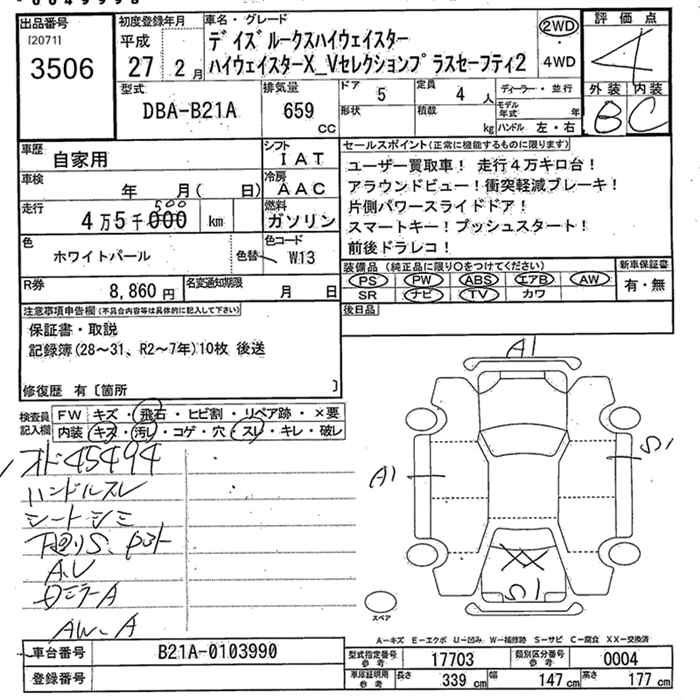 出品番号
[20711
3506
初度登録年月
平成
27 2月
車名・グレード
デイズルークスハイウェイスター
ハイウェイスターX_Vセレクションプラスセーフティ2
2WD
4WD
評価点
4
外装 内装
B C
型式
DBA-B21A
排気量
659
CC
ドア 5
形状
定員 4 人
積載 kg
ディーラー・並行
モデル年式 年
ハンドル 左・右
車歴
自家用
シフト
IAT
車検
年 月( 日)
冷房
AAC
走行
4万5千000 km
500
燃料
ガソリン
色
ホワイトパール
色替
色コード
W13
R券
8,860円
名変通知期限
月 日
セールスポイント(正常に機能するものに限ります)
ユーザー買取車! 走行4万キロ台!
アラウンドビュー!衝突軽減ブレーキ!
片側パワースライドドア!
スマートキー!プッシュスタート!
前後ドラレコ!
装備品 (純正品に限り○をつけてください)
PS PW ABS エアB AW
SR ナビ TV カワ
新車保証書
有・無
後日品
注意事項申告欄(不具合内容等は具体的に記入して下さい)
保証書・取説
記録簿(28~31、R2~7年)10枚 後送
修復歴 有〔箇所 〕
検査員
記入欄
FW キズ・飛石・ヒビ割・リペア跡・×要
内装 キズ・汚レ・コゲ・穴・スレ・キレ・破レ
オド45494
ハンドルスレ
シートシミ
下廻りS、
A.U
ロミラーA
AW.A
A1
A1
S1
XX
S1
スペア
A-キズ E-エクボ U-凹み W-補修跡 S-サビ C-腐食 XX-交換済
車台番号
B21A-0103990
登録番号
型式指定番号 参考
17703
類別区分番号 参考
0004
車庫証明用 参考
長さ 339 cm
幅 147 cm
高さ 177 cm